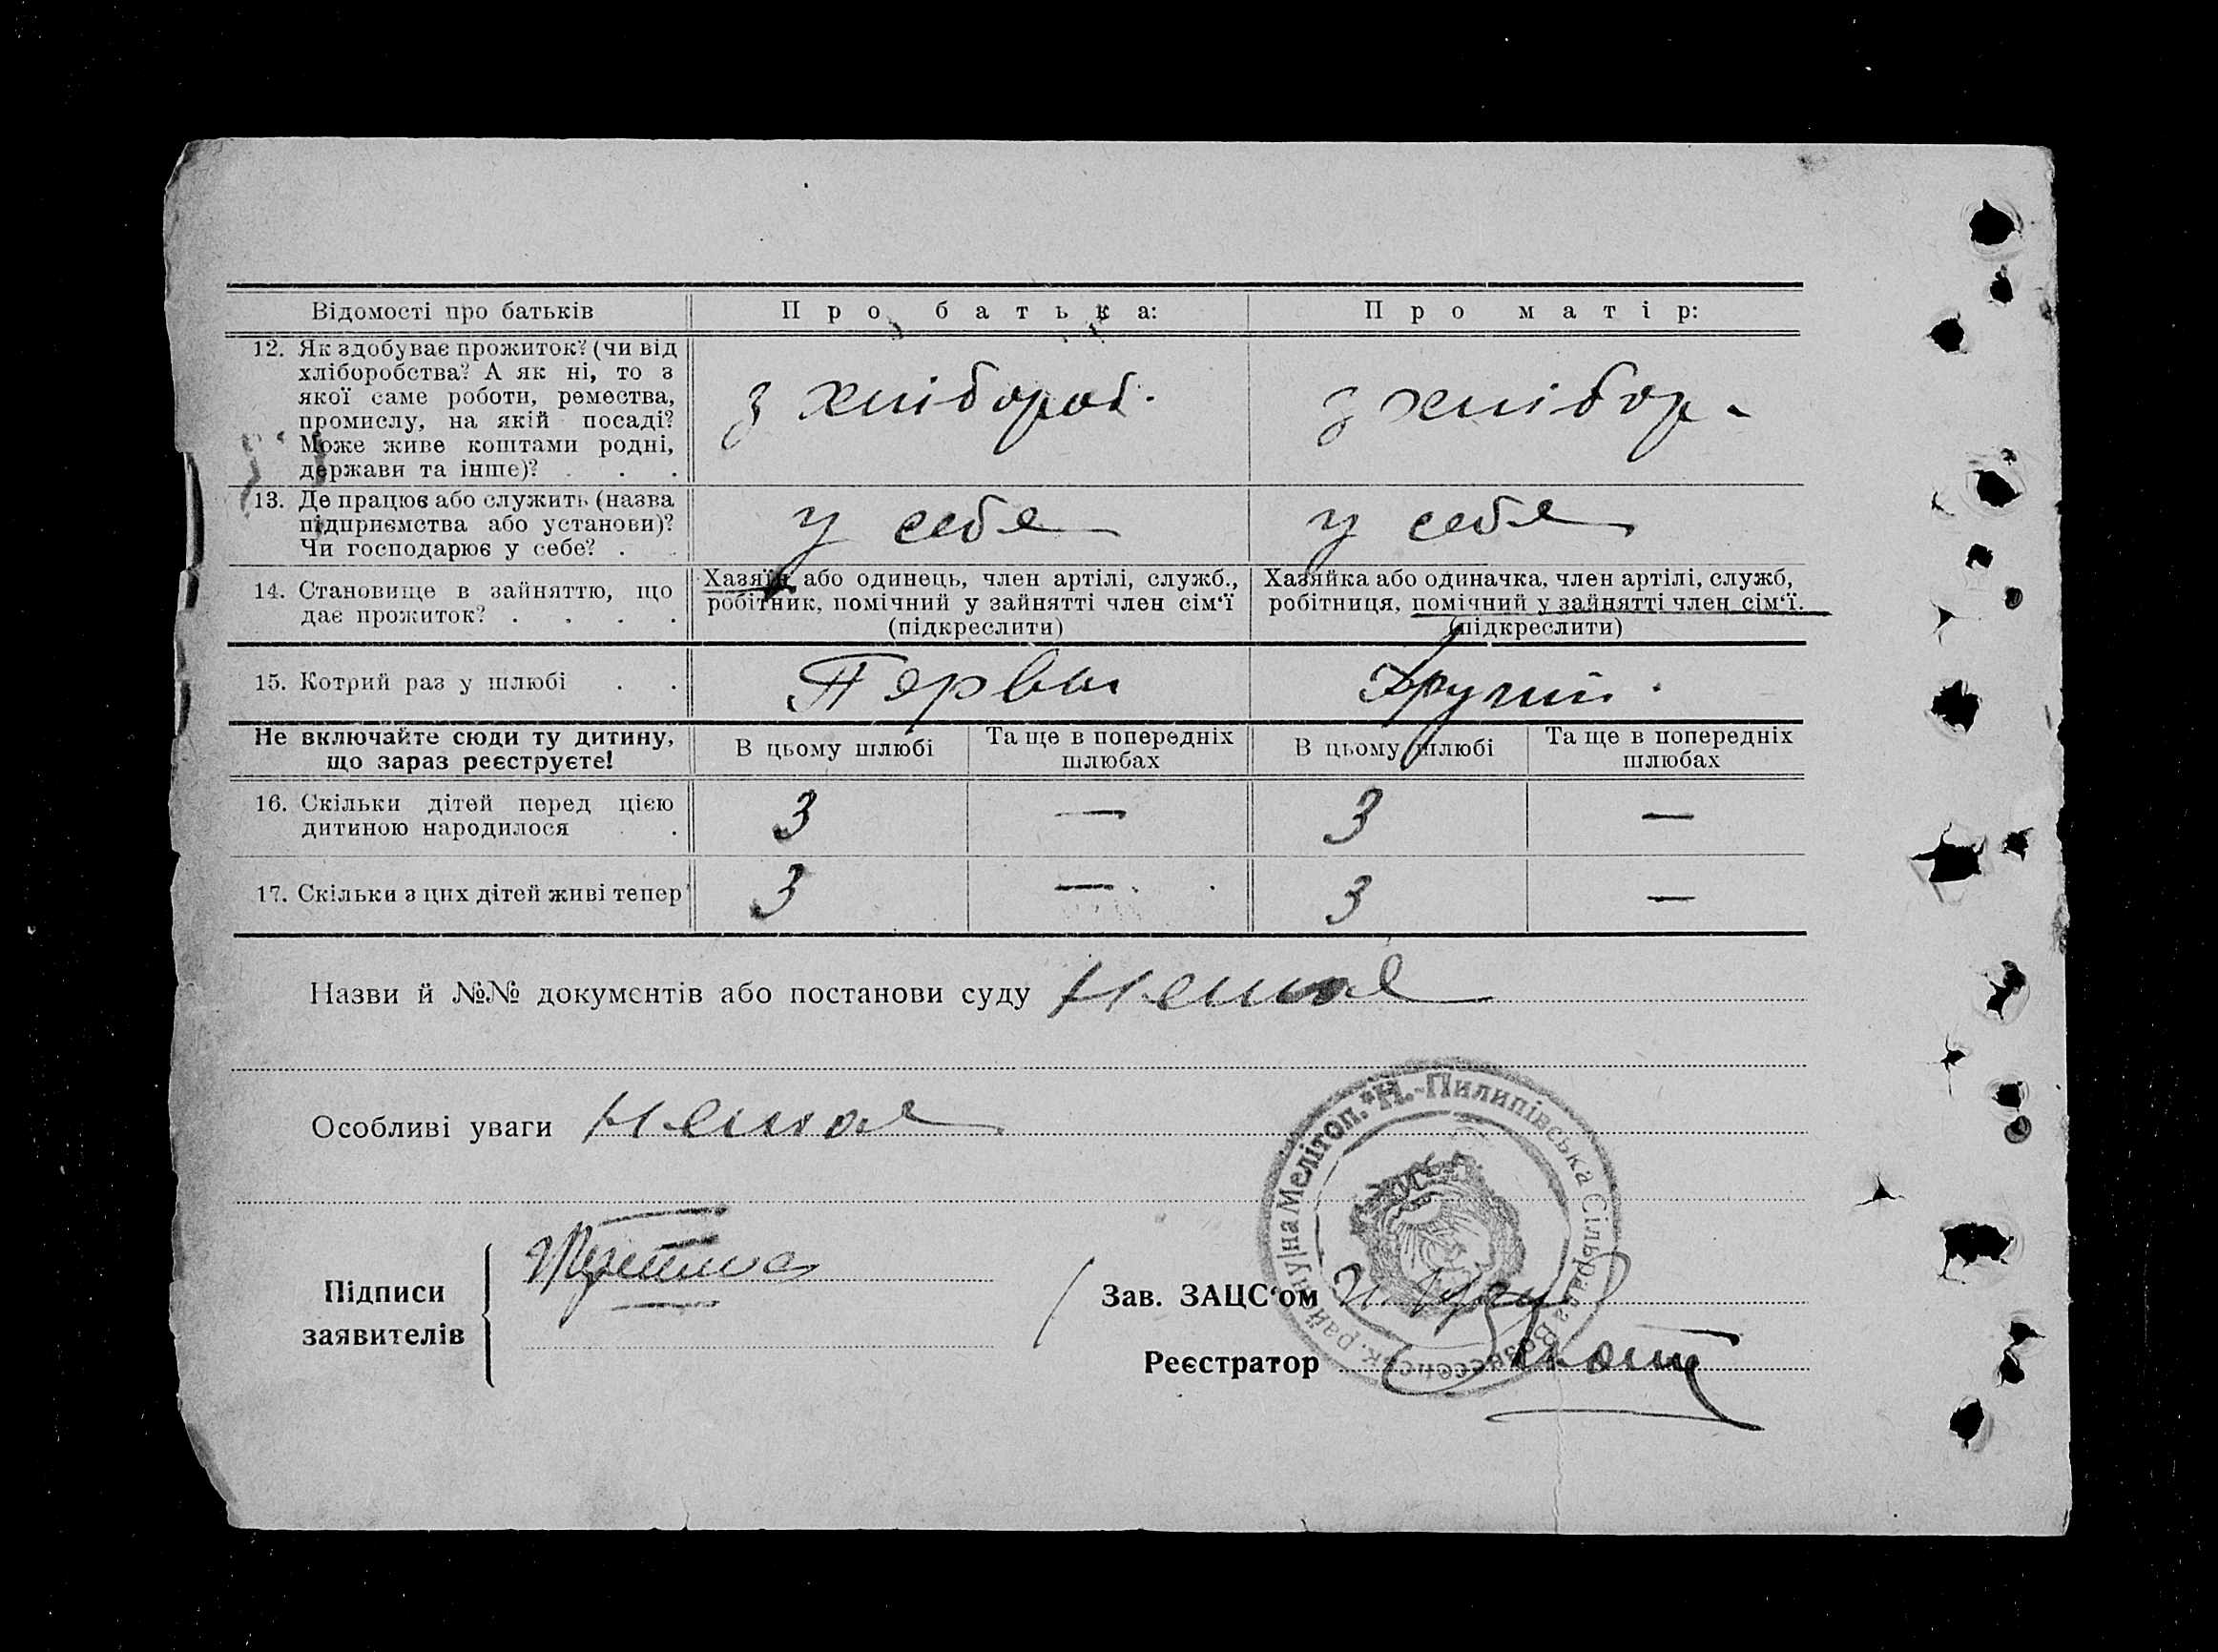 Відомості про батьків
Про батька:
Про матір:
12. Як здобуває прожиток? (чи від
хліборобства? А як ні, то з
якої саме роботи, ремества,
промислу, на якій посаді?
Може живе коштами родні,
держави та інше)? . . .
з хлібороб.
з хлібор.
13. Де працює або служить (назва
підприємства або установи)?
Чи господарює у себе? . .
у себе
у себе
14. Становище в зайняттю, що
дає прожиток? . . . .
Хазяїн або одинець, член артілі, служб.,
робітник, помічний у зайнятті член сім‘ї
(підкреслити)
Хазяйка або одиначка, член артілі, служб,
робітниця, помічний у зайнятті член сім‘ї.
(підкреслити)
15. Котрий раз у шлюбі . .
Первы
Другий.
Не включайте сюди ту дитину,
що зараз реєструєте!
В цьому шлюбі
Та ще в попередніх
шлюбах
В цьому шлюбі
Та ще в попередніх
шлюбах
16. Скільки дітей перед цією
дитиною народилося .
3 — 3 —
17. Скільки з цих дітей живі тепер
3 — 3 —
Назви й №№ документів або постанови суду немає
Особливі уваги немає
Підписи
заявителів
Зав. ЗАЦС‘ом
Реєстратор
Н.-Пилипівська Сільрада Вознесенськ. району на Мелітоп.